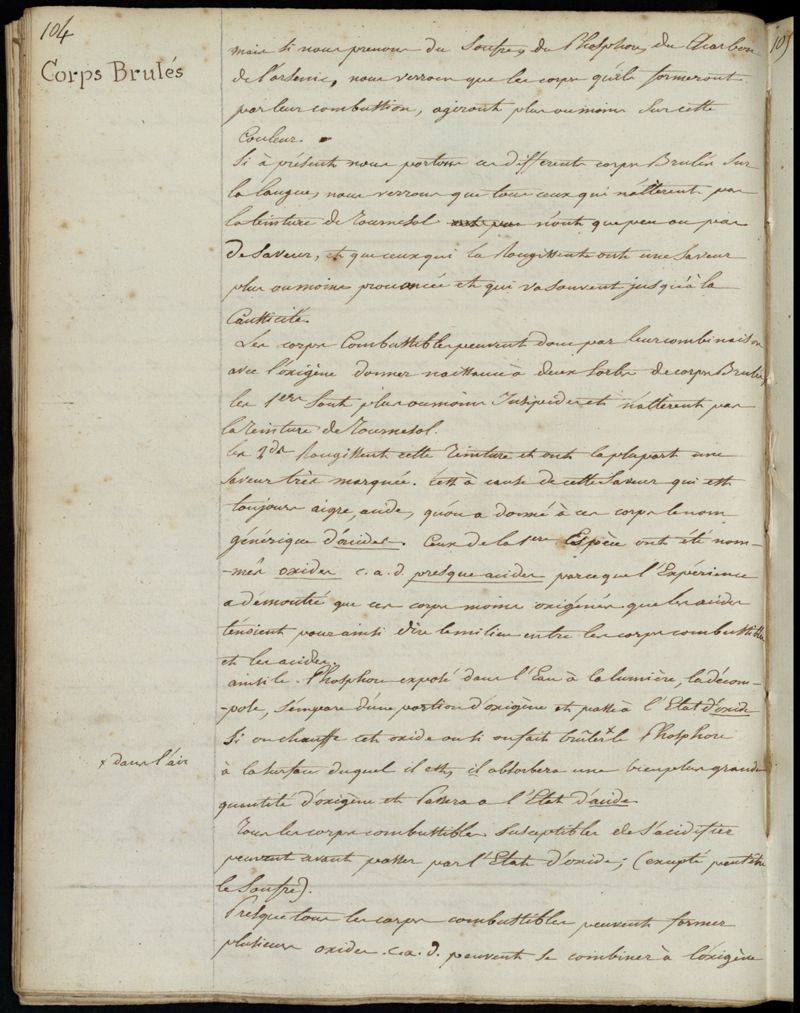 104
Corps Brulés
mais si nous prenons du Soufre, du Phosphore, du Charbon
de l'arsenic, nous verrons que les corps qu'ils formeront
par leur combustion, agiront plus ou moins sur cette
Couleur.
Si à présent nous portons ces différents corps Brulés sur
la langue, nous verrons que tous ceux qui n'altèrent pas
la teinture de Tournesol n'ont que peu ou pas
de Saveur, et que ceux qui la Rougissent ont une saveur
plus ou moins prononcée et qui va souvent jusqu'à la
Causticité.
Les corps Combustibles peuvent donc par leur combinaison
avec l'oxigène donner naissance à deux sortes de corps Brulés,
les 1ers sont plus ou moins Insipides et n'altèrent pas
la teinture de Tournesol.
les 2ds Rougissent cette Teinture et ont la plupart une
saveur très marquée. C'est à cause de cette Saveur qui est
toujours aigre, acide, qu'on a donné à ces corps le nom
générique d'acides. Ceux de la 1ere Espèce ont été nom-
-més oxides c. a. d. presque acides parceque l'Expérience
a démontré que ces corps moins oxigénés que les acides
tenoient pour ainsi dire le milieu entre les corps combustibles
et les acides.
ainsi le Phosphore exposé dans l'Eau à la lumière, la décom-
-pose, s'empare d'une portion d'oxigène et passe à l'Etat d'oxide
Si on chauffe cet oxide ou si on fait brûler x le Phosphore
x dans l'air
à la surface duquel il est, il absorbera une bien plus grande
quantité d'oxigène et Passera a l'Etat d'acide
Tous les corps combustibles susceptibles de s'acidifier
peuvent avant passer par l'Etat d'oxide; (excepté peut être
le Soufre).
Presque tous les corps combustibles peuvent former
plusieurs oxides c. a. d. peuvent se combiner à l'oxigène
105